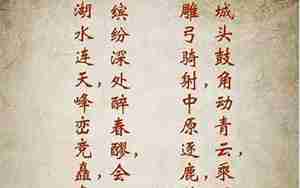 城头鼓角动青云，乘
雕弓骑射，中原逐鹿，
缤纷深处醉春醪，会
湖水连天，峰峦竞矗，